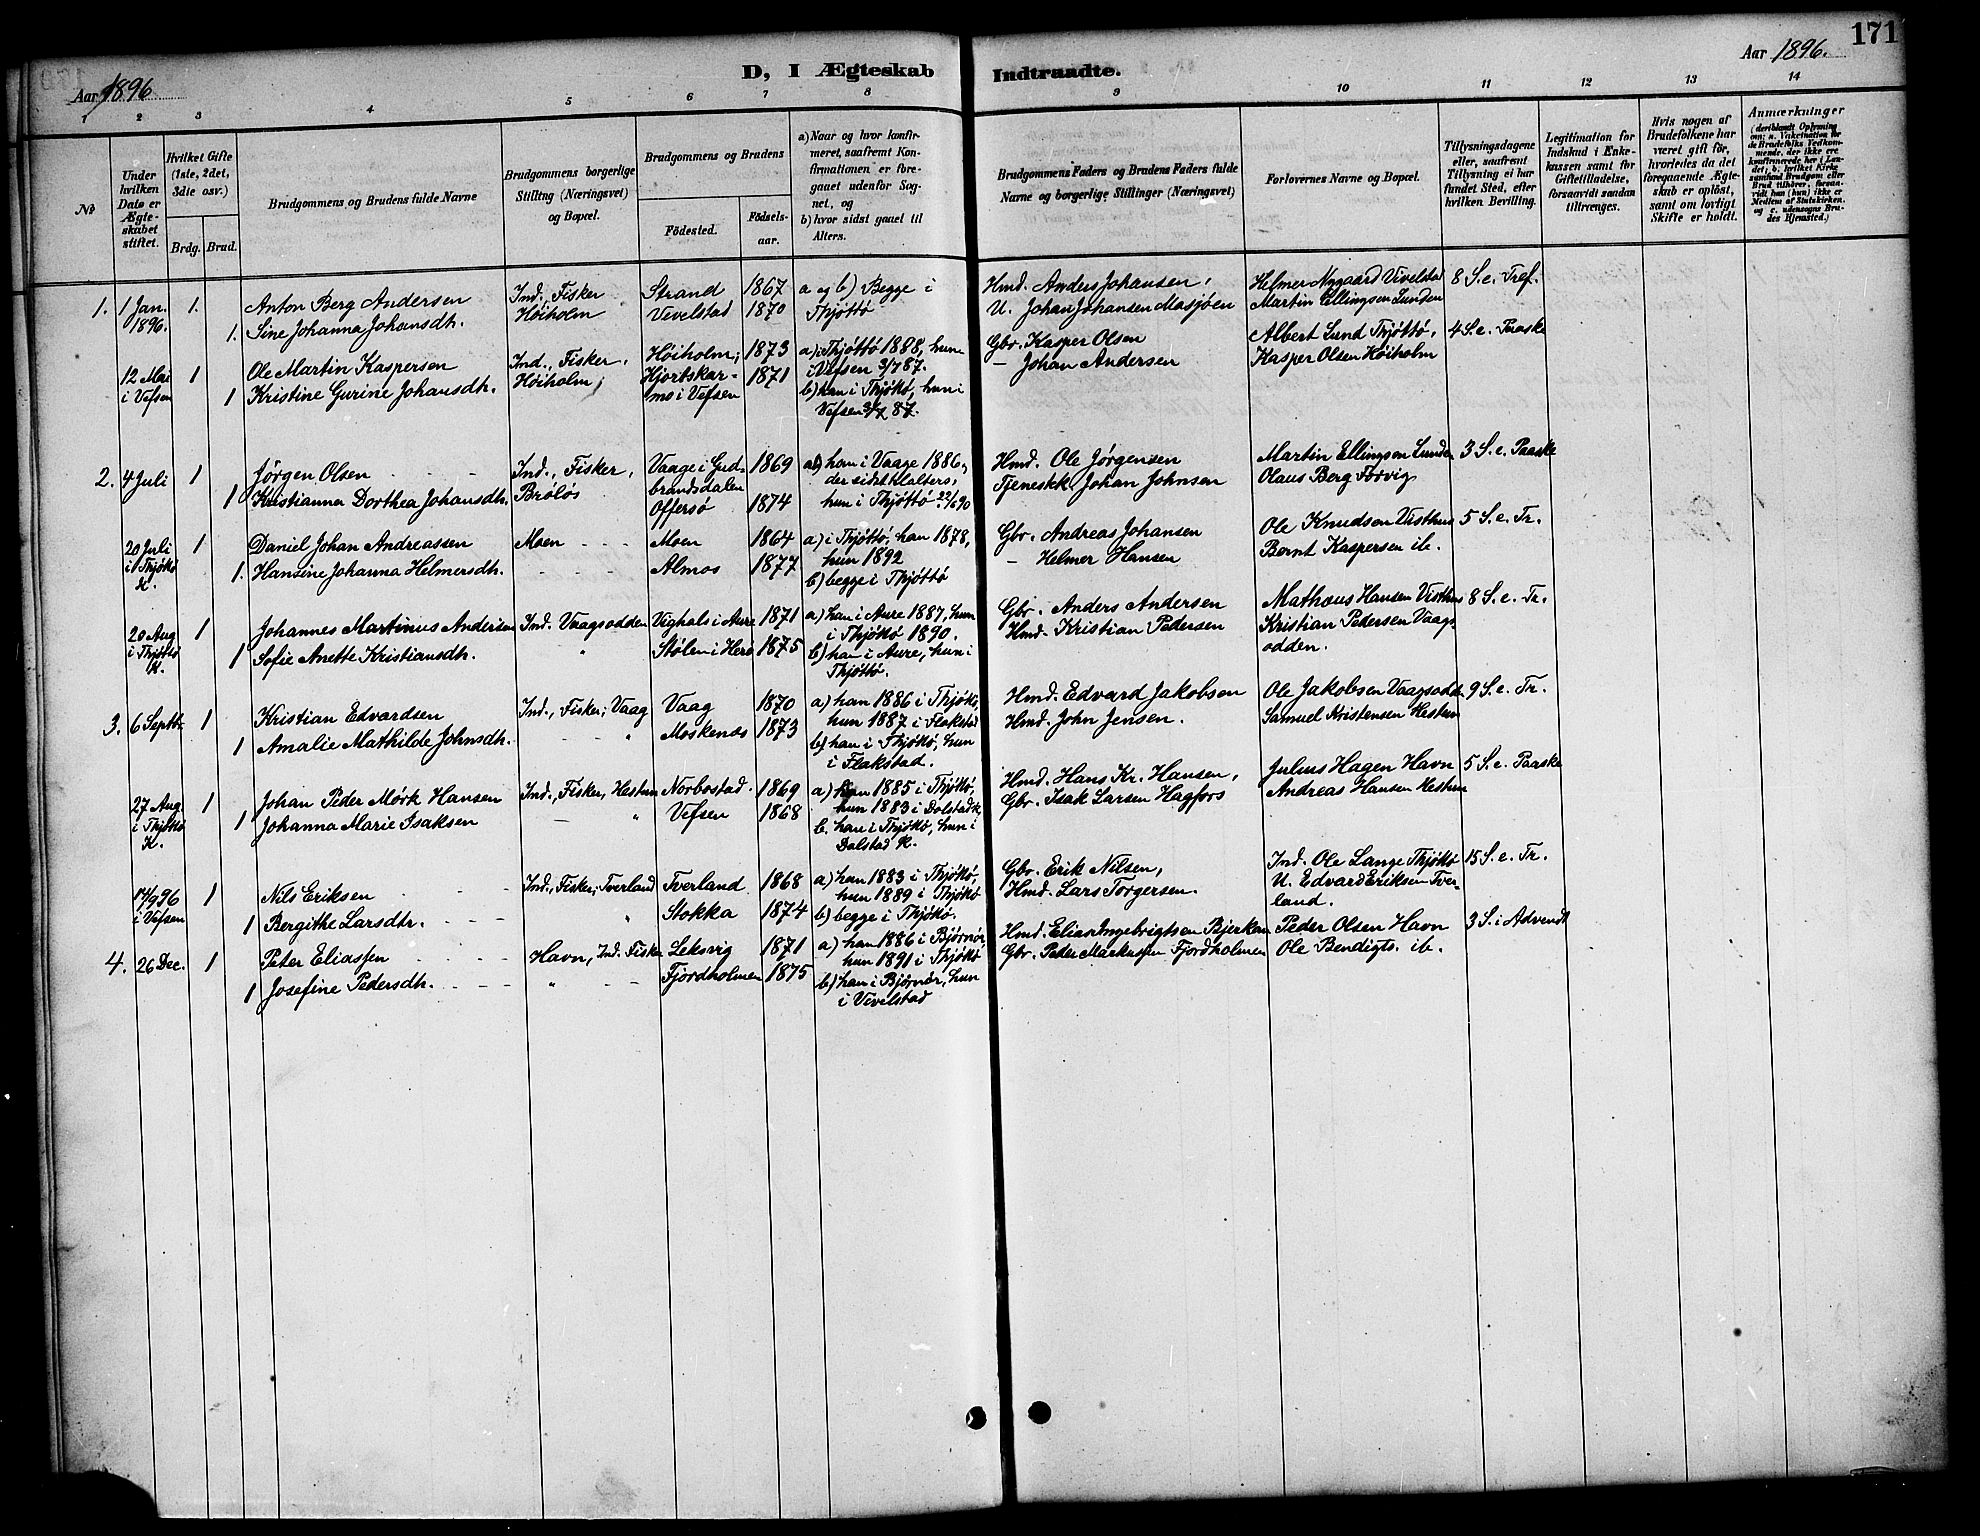 171
Aar 1896
D, I Ægteskab Indtraadte.
Aar 1896.
1 2 3 4 5 6 7 8 9 10 11 12 13 14
No
Under hvilken Dato er Ægteskabet stiftet.
Hvilket Gifte (1ste, 2det, 3die osv.)
Brdg. Brud.
Brudgommens og Brudens fulde Navne
Brudgommens borgerlige Stilling (Næringsvei) og Bopæl.
Brudgommens og Brudens
Födested. Födselsaar.
a) Naar og hvor konfirmeret, saafremt Konfirmationen er foregaaet udenfor Sognet, og
b) hvor sidst gaaet til Alters.
Brudgommens Faders og Brudens Faders fulde Navne og borgerlige Stillinger (Næringsvei)
Forlovernes Navne og Bopæl.
Tillysningsdagene eller, saafremt Tillysning ei har fundet Sted, efter hvilken Bevilling.
Legitimation for Indskud i Enkekassen samt for Giftetilladelse, forsaavidt saadan tiltrænges.
Hvis nogen af Brudefolkene har været gift för, hvorledes da det foregaaende Ægteskab er oplöst, samt om lovligt Skifte er holdt.
Anmærkninger
(deriblandt Oplysning om: a. Vakcination for de Brudefolks Vedkommende, der ikke ere konfirmerede her i Landet; b. hvilket Kirkesamfund Brudgom eller Brud tilhörer, forsaavidt han (hun) ikke er Medlem af Statskirken, og c. udensogns Brudes Hjemsted.)
1. 1 Jan. 1896. 1. Anton Berg Andersen Ind., Fisker Høiholm Strand 1867 a og b) Begge i Thjøttø Hmd. Anders Johansen, Helmer Nygaard Vivelstad 8 S. e. Tref.
1. Sine Johanna Johansdtr. Vivelstad 1870 U. Johan Johansen Masjøen Martin Ellingsen Lunden
12 Mai i Vefsen 1 Ole Martin Kaspersen Ind., Fisker, Høiholm; Høiholm; 1873 a) i Thjøttø 1888, hun i Vefsen 3/7 87. Gbr. Kasper Olsen Albert Lund Thjøttø, 4 S. e. Paaske
1 Kristine Gurine Johansdtr. Hjortskarmo i Vefsen 1871 b) han i Thjøttø, hun i Vefsen 3/7 87. – Johan Andersen Kasper Olsen Høiholm
2. 4 Juli 1 Jørgen Olsen Ind., Fisker, Brøløs Vaage i Gudbrandsdalen 1869 han i Vaage 1886, Hmd. Ole Jørgensen Martin Ellingsen Lunden 3 S. e. Paaske
1 Kristianna Dorthea Johansdtr. Offersø 1874 hun i Thjøttø 22/6 90 Tjenestk. Johan Johnsen Olaus Berg Forvig
20 Juli i Thjøttø K. 1 Daniel Johan Andreassen Moen Moen 1864 a) i Thjøttø, han 1878, hun 1892 Gbr. Andreas Johansen Ole Knudsen Visthus 5 S. e. Tr.
1. Hansine Johanna Helmersdtr. Almos 1877 b) begge i Thjøttø – Helmer Hansen Bernt Kaspersen ib.
20 Aug. i Thjøttø K. 1 Johannes Martinus Andersen Ind. Vaagsodden Vighals i Aure 1871 a) han i Aure 1887, hun i Thjøttø 1890. Gbr. Anders Andersen Mathæus Hansen Visthus 8 S. e. Tr.
1 Sofie Anette Kristiansdtr. " Stølen i Herø 1875 b) han i Aure, hun i Thjøttø. Hmd. Kristian Pedersen Kristian Pedersen Vaagsodden.
3. 6 Septbr. 1 Kristian Edvardsen Ind., Fisker; Vaag Vaag 1870 a) han 1886 i Thjøttø, hun 1887 i Flakstad Hmd. Edvard Jakobsen Ole Jakobsen Vaagsodd. 9 S. e. Tr.
1 Amalie Mathilde Johnsdtr. " Moskenæs 1873 b) han i Thjøttø, hun i Flakstad. Hmd. John Jensen. Samuel Kristensen Hestun
27 Aug. i Thjøttø K. 1 Johan Peder Mørk Hansen Ind., Fisker, Hestun Norbostad 1869 a) han 1885 i Thjøttø, hun 1883 i Dolstad K. Hmd. Hans Kr. Hansen, Julius Hagen Havn 5 S. e. Paaske
1 Johanna Marie Isaksen " Vefsen 1868 b. han i Thjøttø, hun i Dolstad K. Gbr. Isak Larsen Hagfors Andreas Hansen Hestun
17/9 96 i Vefsen 1 Nils Eriksen Ind., Fisker; Tverland Tverland 1868 a) han 1883 i Thjøttø, hun 1889 i Thjøttø Gbr. Erik Nilsen, Ind. Ole Lange Thjøttø 15 S. e. Tr.
1 Bergithe Larsdtr. " Stokka 1874 b) begge i Thjøttø. Hmd. Lars Torgersen. U. Edvard Eriksen Tverland.
4. 26 Dec. 1 Peter Eliassen Havn, Ind. Fisker Leksvig 1871 a) han 1886 i Bjørnør, hun 1891 i Thjøttø Hmd. Elias Ingebrigtsen Bjerkan Peder Olsen Havn 3 S. i Advendt
1 Josefine Pedersdtr. " Fjordholmen 1875 b) han i Bjørnør, hun i Vivelstad Gbr. Peder Markussen Fjordholmen Ole Bendigts. ib.